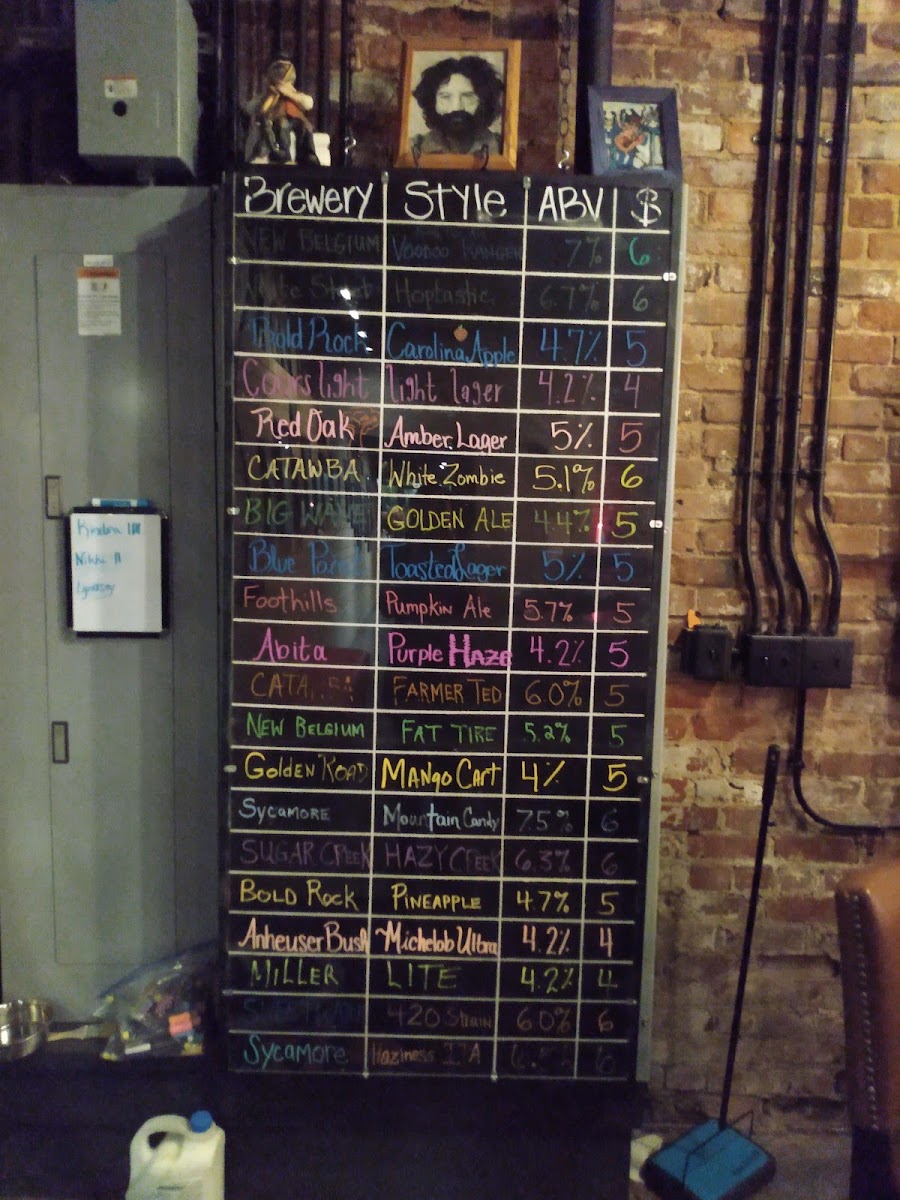 Brewery STYLE ABV $
NEW BELGIUM VOODOO RANGER 7% 6
White Street Hoptastic 6.7% 6
Bold Rock Carolina Apple 4.7% 5
Coors light light lager 4.2% 4
Red Oak Amber Lager 5% 5
CATAWBA White Zombie 5.1% 6
BIG WAVE GOLDEN ALE 4.4% 5
Blue Toasted Lager 5% 5
Foothills Pumpkin Ale 5.7% 5
Abita Purple Haze 4.2% 5
CATAWBA FARMER TED 6.0% 5
NEW BELGIUM FAT TIRE 5.2% 5
Golden Road Mango Cart 4% 5
Sycamore Mountain Candy 7.5% 6
SUGAR CREEK HAZY CREEK 6.3% 6
BOLD ROCK PINEAPPLE 4.7% 5
Anheuser Bush Michelob Ultra 4.2% 4
MILLER LITE 4.2% 4
420 Strain 6.0% 6
Sycamore Haziness IPA 6
Kindra
Nikki II
Lyndsey